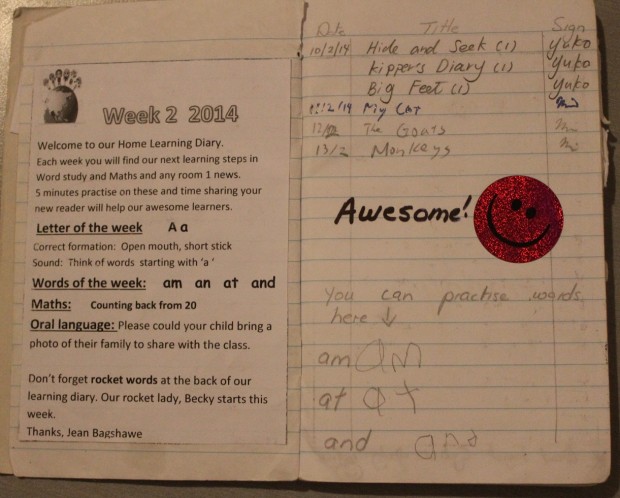 Week 2 2014
Welcome to our Home Learning Diary.
Each week you will find our next learning steps in
Word study and Maths and any room 1 news.
5 minutes practise on these and time sharing your
new reader will help our awesome learners.
Letter of the week A a
Correct formation: Open mouth, short stick
Sound: Think of words starting with 'a '
Words of the week: am an at and
Maths: Counting back from 20
Oral language: Please could your child bring a
photo of their family to share with the class.
Don't forget rocket words at the back of our
learning diary. Our rocket lady, Becky starts this
week.
Thanks, Jean Bagshawe
Date Title Sign
10/2/14 Hide and Seek (1) Yuko
Kipper's Diary (1) Yuko
Big Feet (1) Yuko
12/2/14 My CAT
12/2 The Goats
13/2 Monkeys
Awesome!
You can practise words
here ↓
am am
at at
and and